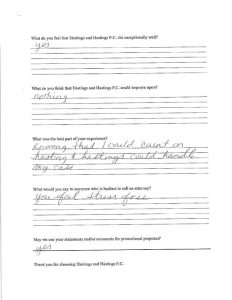 What do you feel that Hastings and Hastings P.C. did exceptionally well?
yes
What do you think that Hastings and Hastings P.C. could improve upon?
nothing
What was the best part of your experience?
knowing that I could count on
hasting & hastings could handle
my case
What would you say to someone who is hesitant to call an attorney?
you feel stress free
May we use your statements and/or comments for promotional purposes?
yes
Thank you for choosing Hastings and Hastings P.C.